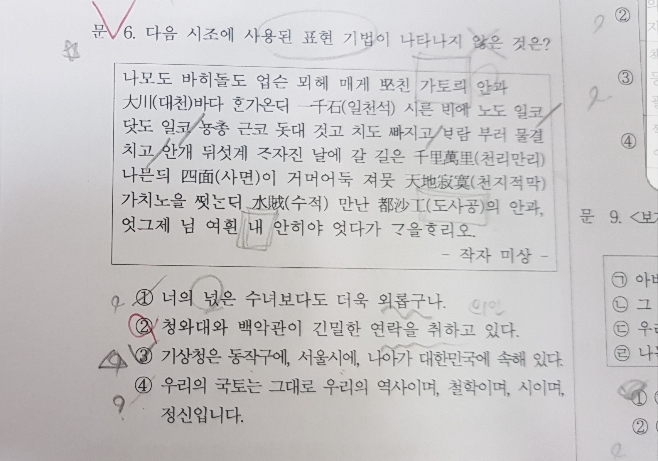 문 6. 다음 시조에 사용된 표현 기법이 나타나지 않은 것은?
나모도 바히돌도 업슨 뫼헤 매게 ᄧᅩ친 가토릐 안과
大川(대천)바다 혼가온ᄃᆡ 一千石(일천석) 시른 비예 노도 일코
닷도 일코 뇽총 근코 돗대 것고 치도 ᄲᅡ지고 ᄇᆞ람 부러 물결
치고 안개 뒤섯계 ᄌᆞ자진 날에 갈 길은 千里萬里(천리만리)
나믄듸 四面(사면)이 거머어둑 져뭇 天地寂寞(천지적막)
가치노을 ᄯᅥᆺ는ᄃᆡ 水賊(수적) 만난 都沙工(도사공)의 안과,
엇그제 님 여흰 내 안히야 엇다가 ᄀᆞ을ᄒᆞ리오.
- 작자 미상 -
① 너의 넋은 수녀보다도 더욱 외롭구나.
② 청와대와 백악관이 긴밀한 연락을 취하고 있다.
③ 기상청은 동작구에, 서울시에, 나아가 대한민국에 속해 있다.
④ 우리의 국토는 그대로 우리의 역사이며, 철학이며, 시이며,
정신입니다.
②
③
④
문 9. <보
㉠ 아버
㉡ 그
㉢ 우리
㉣ 나는
①
②